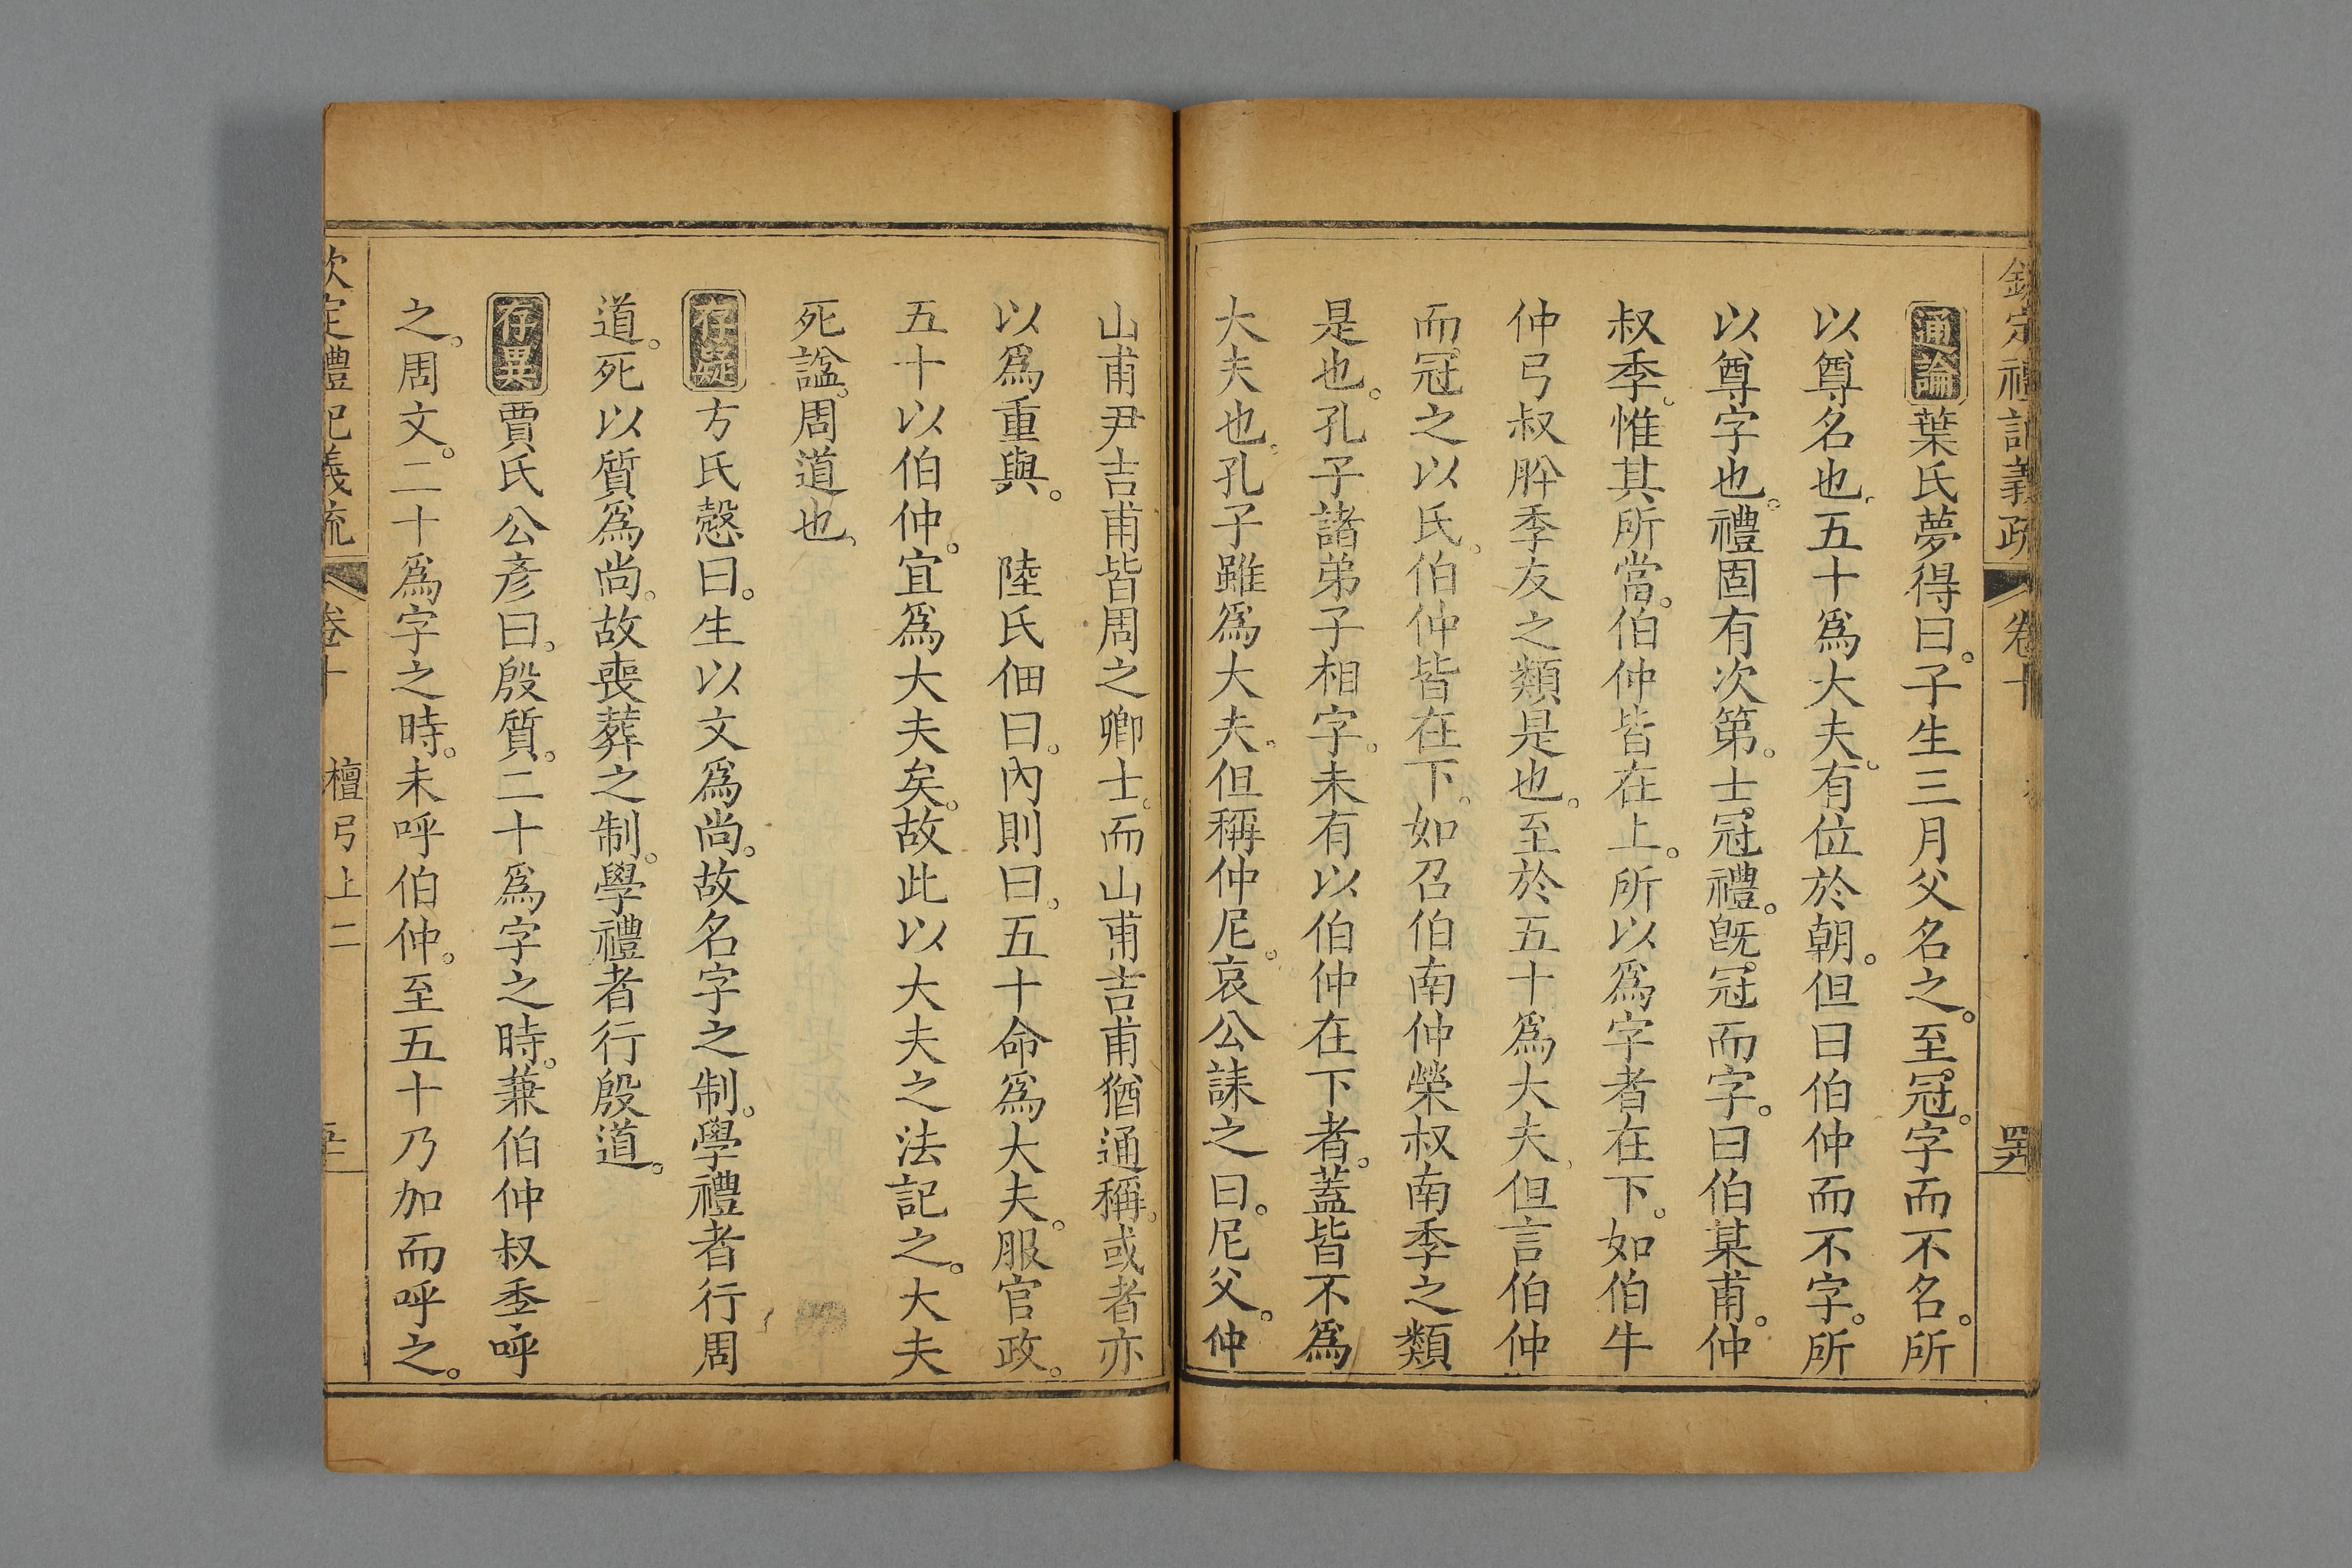 欽定禮記義疏 卷十
通論 葉氏夢得曰。子生三月父名之。至冠。字而不名。所
以尊名也。五十爲大夫。有位於朝。但曰伯仲而不字。所
以尊字也。禮固有次第。士冠禮。旣冠而字。曰伯某甫。仲
叔季。惟其所當。伯仲皆在上。所以爲字者在下。如伯牛
仲弓叔肸季友之類是也。至於五十爲大夫。但言伯仲
而冠之以氏。伯仲皆在下。如召伯南仲榮叔南季之類
是也。孔子諸弟子相字。未有以伯仲在下者。蓋皆不爲
大夫也。孔子雖爲大夫。但稱仲尼。哀公誄之曰。尼父。仲
山甫尹吉甫皆周之卿士。而山甫吉甫猶通稱。或者亦
以爲重與。 陸氏佃曰。內則曰。五十命爲大夫。服官政。
五十以伯仲。宜爲大夫矣。故此以大夫之法記之。大夫
死諡。周道也。
存疑 方氏慤曰。生以文爲尚。故名字之制。學禮者行周
道。死以質爲尚。故喪葬之制。學禮者行殷道。
存異 賈氏公彥曰。殷質。二十爲字之時。兼伯仲叔季呼
之。周文。二十爲字之時。未呼伯仲。至五十乃加而呼之。
欽定禮記義疏 卷十 檀弓上二